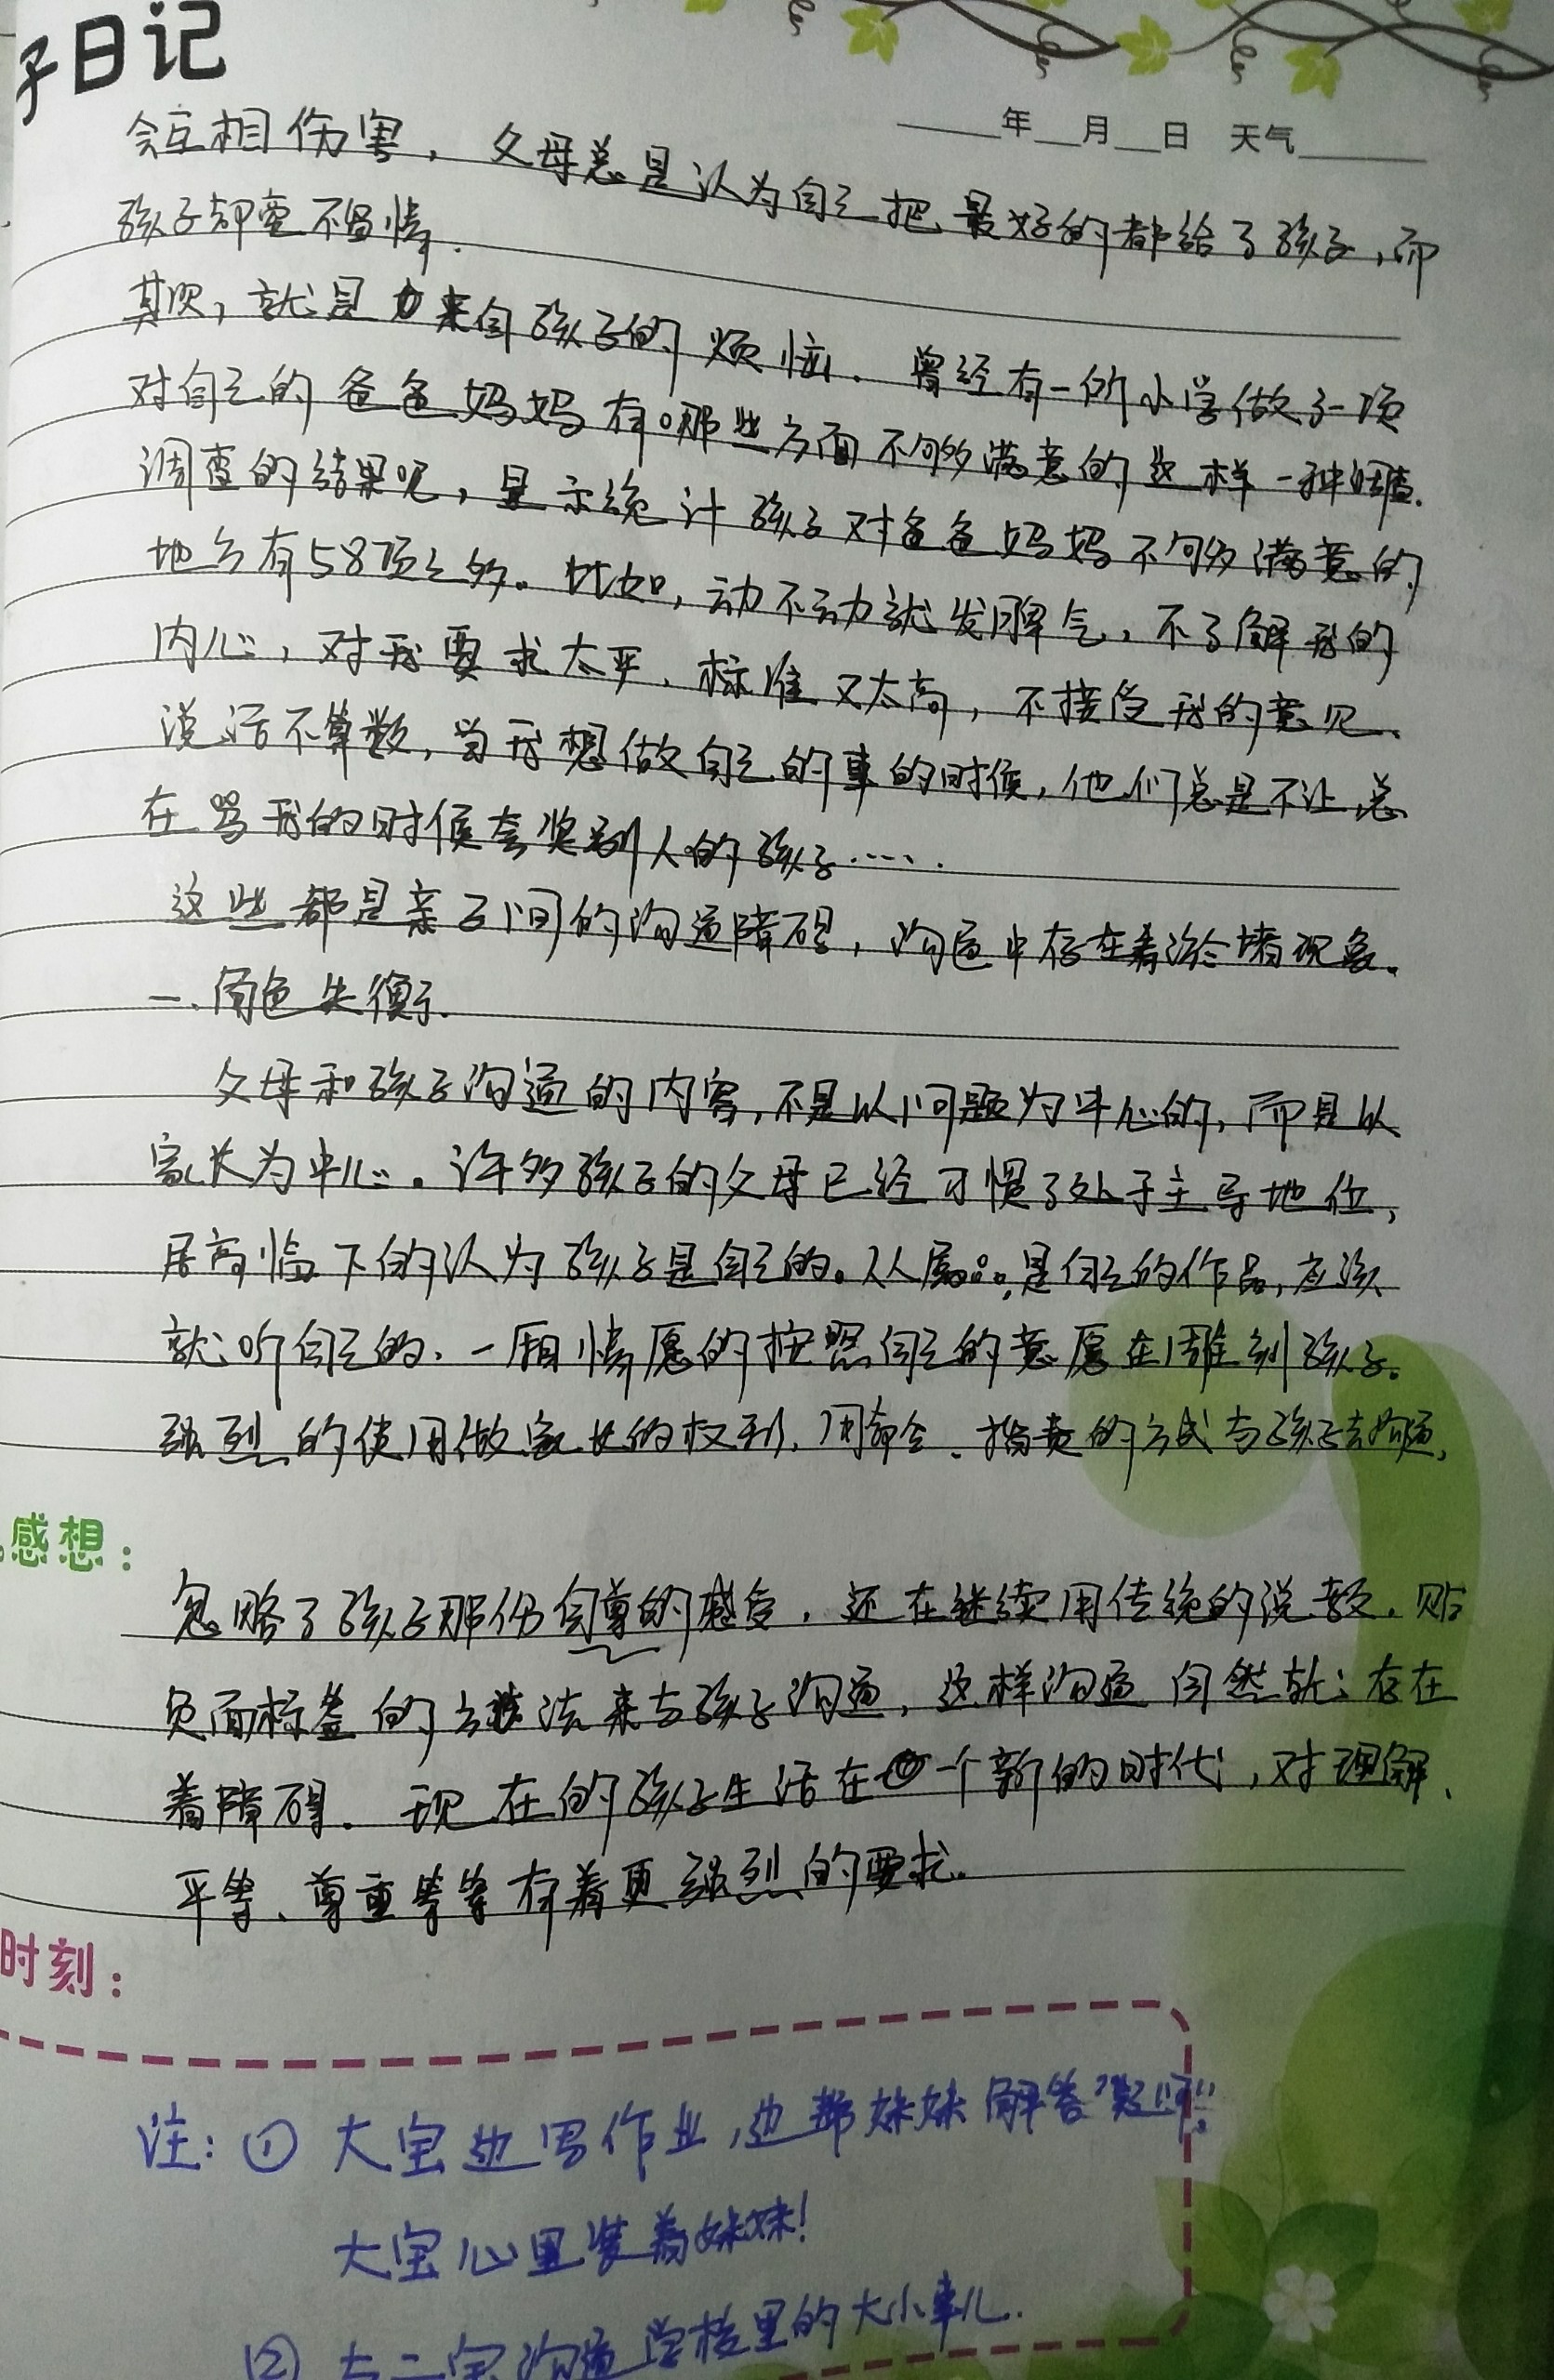 子日记
年 月 日 天气
会互相伤害，父母总是认为自己把最好的都给了孩子，而
孩子却毫不留情.
其次，就是来自孩子的烦恼.曾经有一所小学做了一项
对自己的爸爸妈妈有哪些方面不够满意的这样一种调查.
调查的结果呢，显示统计孩子对爸爸妈妈不够满意的
地方有58项之多。比如，动不动就发脾气，不了解我的
内心，对我要求太严、标准又太高，不接受我的意见、
说话不算数，当我想做自己的事的时候，他们总是不让，总
在骂我的时候夸奖别人的孩子……
这些都是亲子间的沟通障碍，沟通中存在着淤堵现象。
一、角色失衡了.
父母和孩子沟通的内容，不是以问题为中心的，而是以
家长为中心。许多孩子的父母已经习惯了处于主导地位，
居高临下的认为孩子是自己的。从属品，是自己的作品，应该
就听自己的、一厢情愿的按照自己的意愿在雕刻孩子。
强烈的使用做家长的权利，用命令、指责的方式与孩子去沟通，
感想：
忽略了孩子那份自尊的感受，还在继续用传统的说教，贴
负面标签的方法来与孩子沟通，这样沟通自然就存在
着障碍.现在的孩子生活在一个新的时代，对理解、
平等、尊重等等有着更强烈的要求。
时刻：
注：① 大宝边写作业，边帮妹妹解答"疑问"!
大宝心里装着妹妹!
② 与二宝沟通学校里的大小事儿.